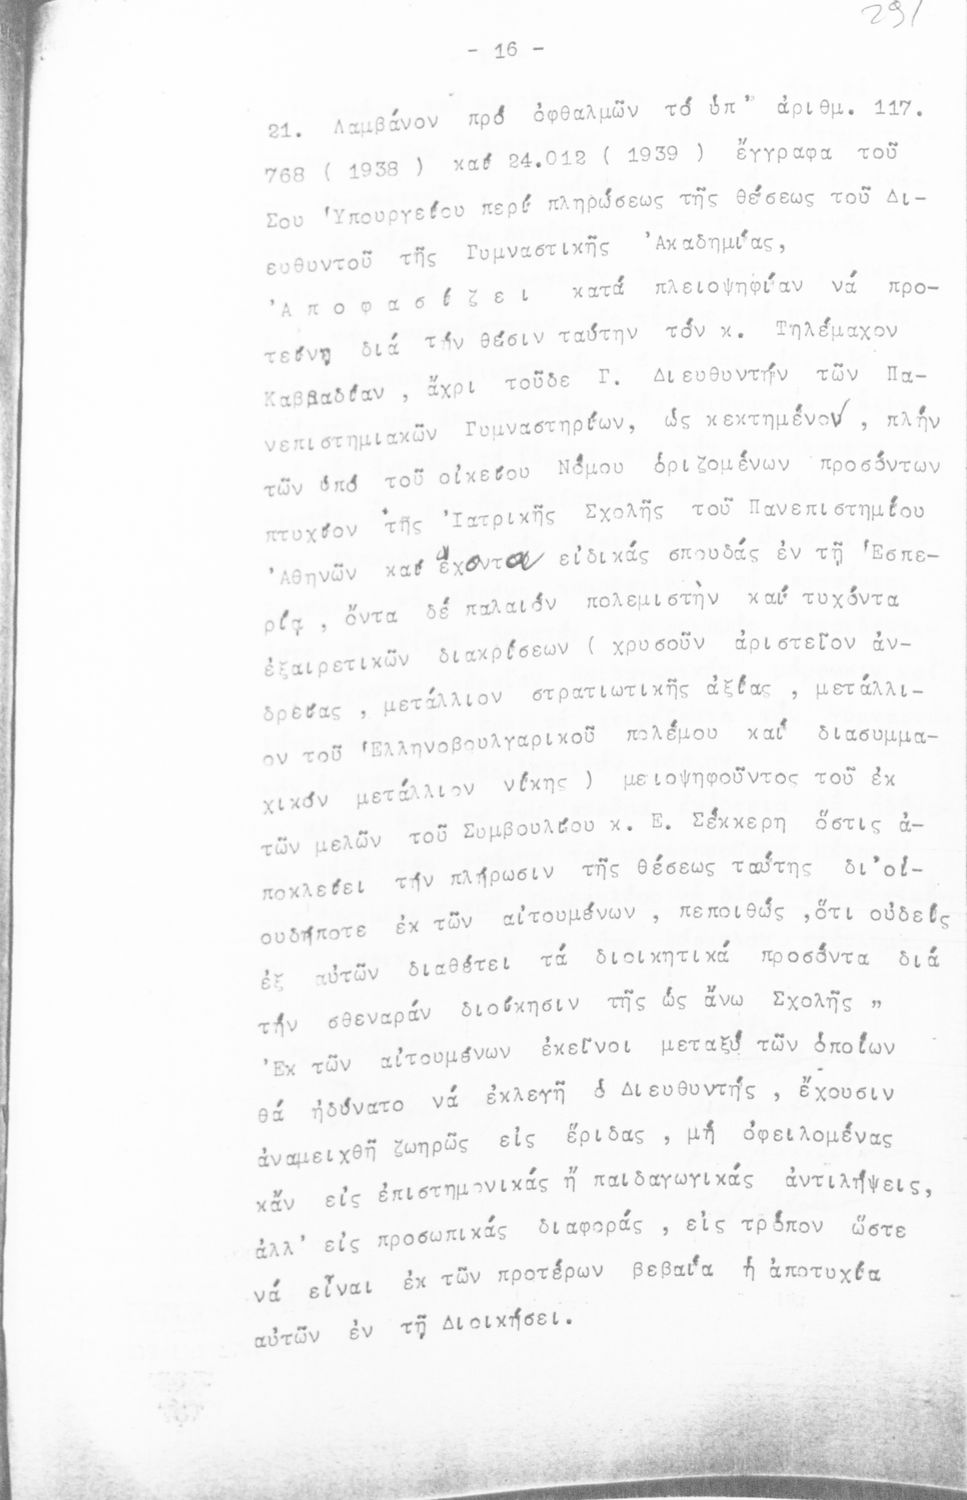 291
- 16 -
21. Λαμβάνον πρό ὀφθαλμῶν τό ὑπ' ἀριθμ. 117.
768 ( 1938 ) καί 24.012 ( 1939 ) ἔγγραφα τοῦ
Σου Ὑπουργείου περί πληρώσεως τῆς θέσεως τοῦ Δι-
ευθυντοῦ τῆς Γυμναστικῆς Ἀκαδημίας,
Ἀ π ο φ α σ ί ζ ε ι κατά πλειοψηφίαν νά προ-
τείνῃ διά τήν θέσιν ταύτην τόν κ. Τηλέμαχον
Καββαδίαν , ἄχρι τοῦδε Γ. Διευθυντήν τῶν Πα-
νεπιστημιακῶν Γυμναστηρίων, ὡς κεκτημένον , πλήν
τῶν ὑπό τοῦ οἰκείου Νόμου ὁριζομένων προσόντων
πτυχίον τῆς Ἰατρικῆς Σχολῆς τοῦ Πανεπιστημίου
Ἀθηνῶν καί ἔχοντα εἰδικάς σπουδάς ἐν τῇ Ἑσπε-
ρίᾳ , ὄντα δέ παλαιόν πολεμιστὴν καί τυχόντα
ἐξαιρετικῶν διακρίσεων ( χρυσοῦν ἀριστεῖον ἀν-
δρείας , μετάλλιον στρατιωτικῆς ἀξίας , μετάλλι-
ον τοῦ Ἑλληνοβουλγαρικοῦ πολέμου καί διασυμμα-
χικόν μετάλλιον νίκης ) μειοψηφοῦντος τοῦ ἐκ
τῶν μελῶν τοῦ Συμβουλίου κ. Ε. Σέκκερη ὅστις ἀ-
ποκλείει τήν πλήρωσιν τῆς θέσεως ταύτης δι'οἱ-
ουδήποτε ἐκ τῶν αἰτουμένων , πεποιθώς ,ὅτι οὐδείς
ἐξ αὐτῶν διαθέτει τά διοικητικά προσόντα διά
τήν σθεναράν διοίκησιν τῆς ὡς ἄνω Σχολῆς „
Ἐκ τῶν αἰτουμένων ἐκεῖνοι μεταξύ τῶν ὁποίων
θά ἠδύνατο νά ἐκλεγῇ ὁ Διευθυντής , ἔχουσιν
ἀναμειχθῆ ζωηρῶς εἰς ἔριδας , μή ὀφειλομένας
κἄν εἰς ἐπιστημονικάς ἤ παιδαγωγικάς ἀντιλήψεις,
ἀλλ' εἰς προσωπικάς διαφοράς , εἰς τρόπον ὥστε
νά εἶναι ἐκ τῶν προτέρων βεβαία ἡ ἀποτυχία
αὐτῶν ἐν τῇ Διοικήσει.